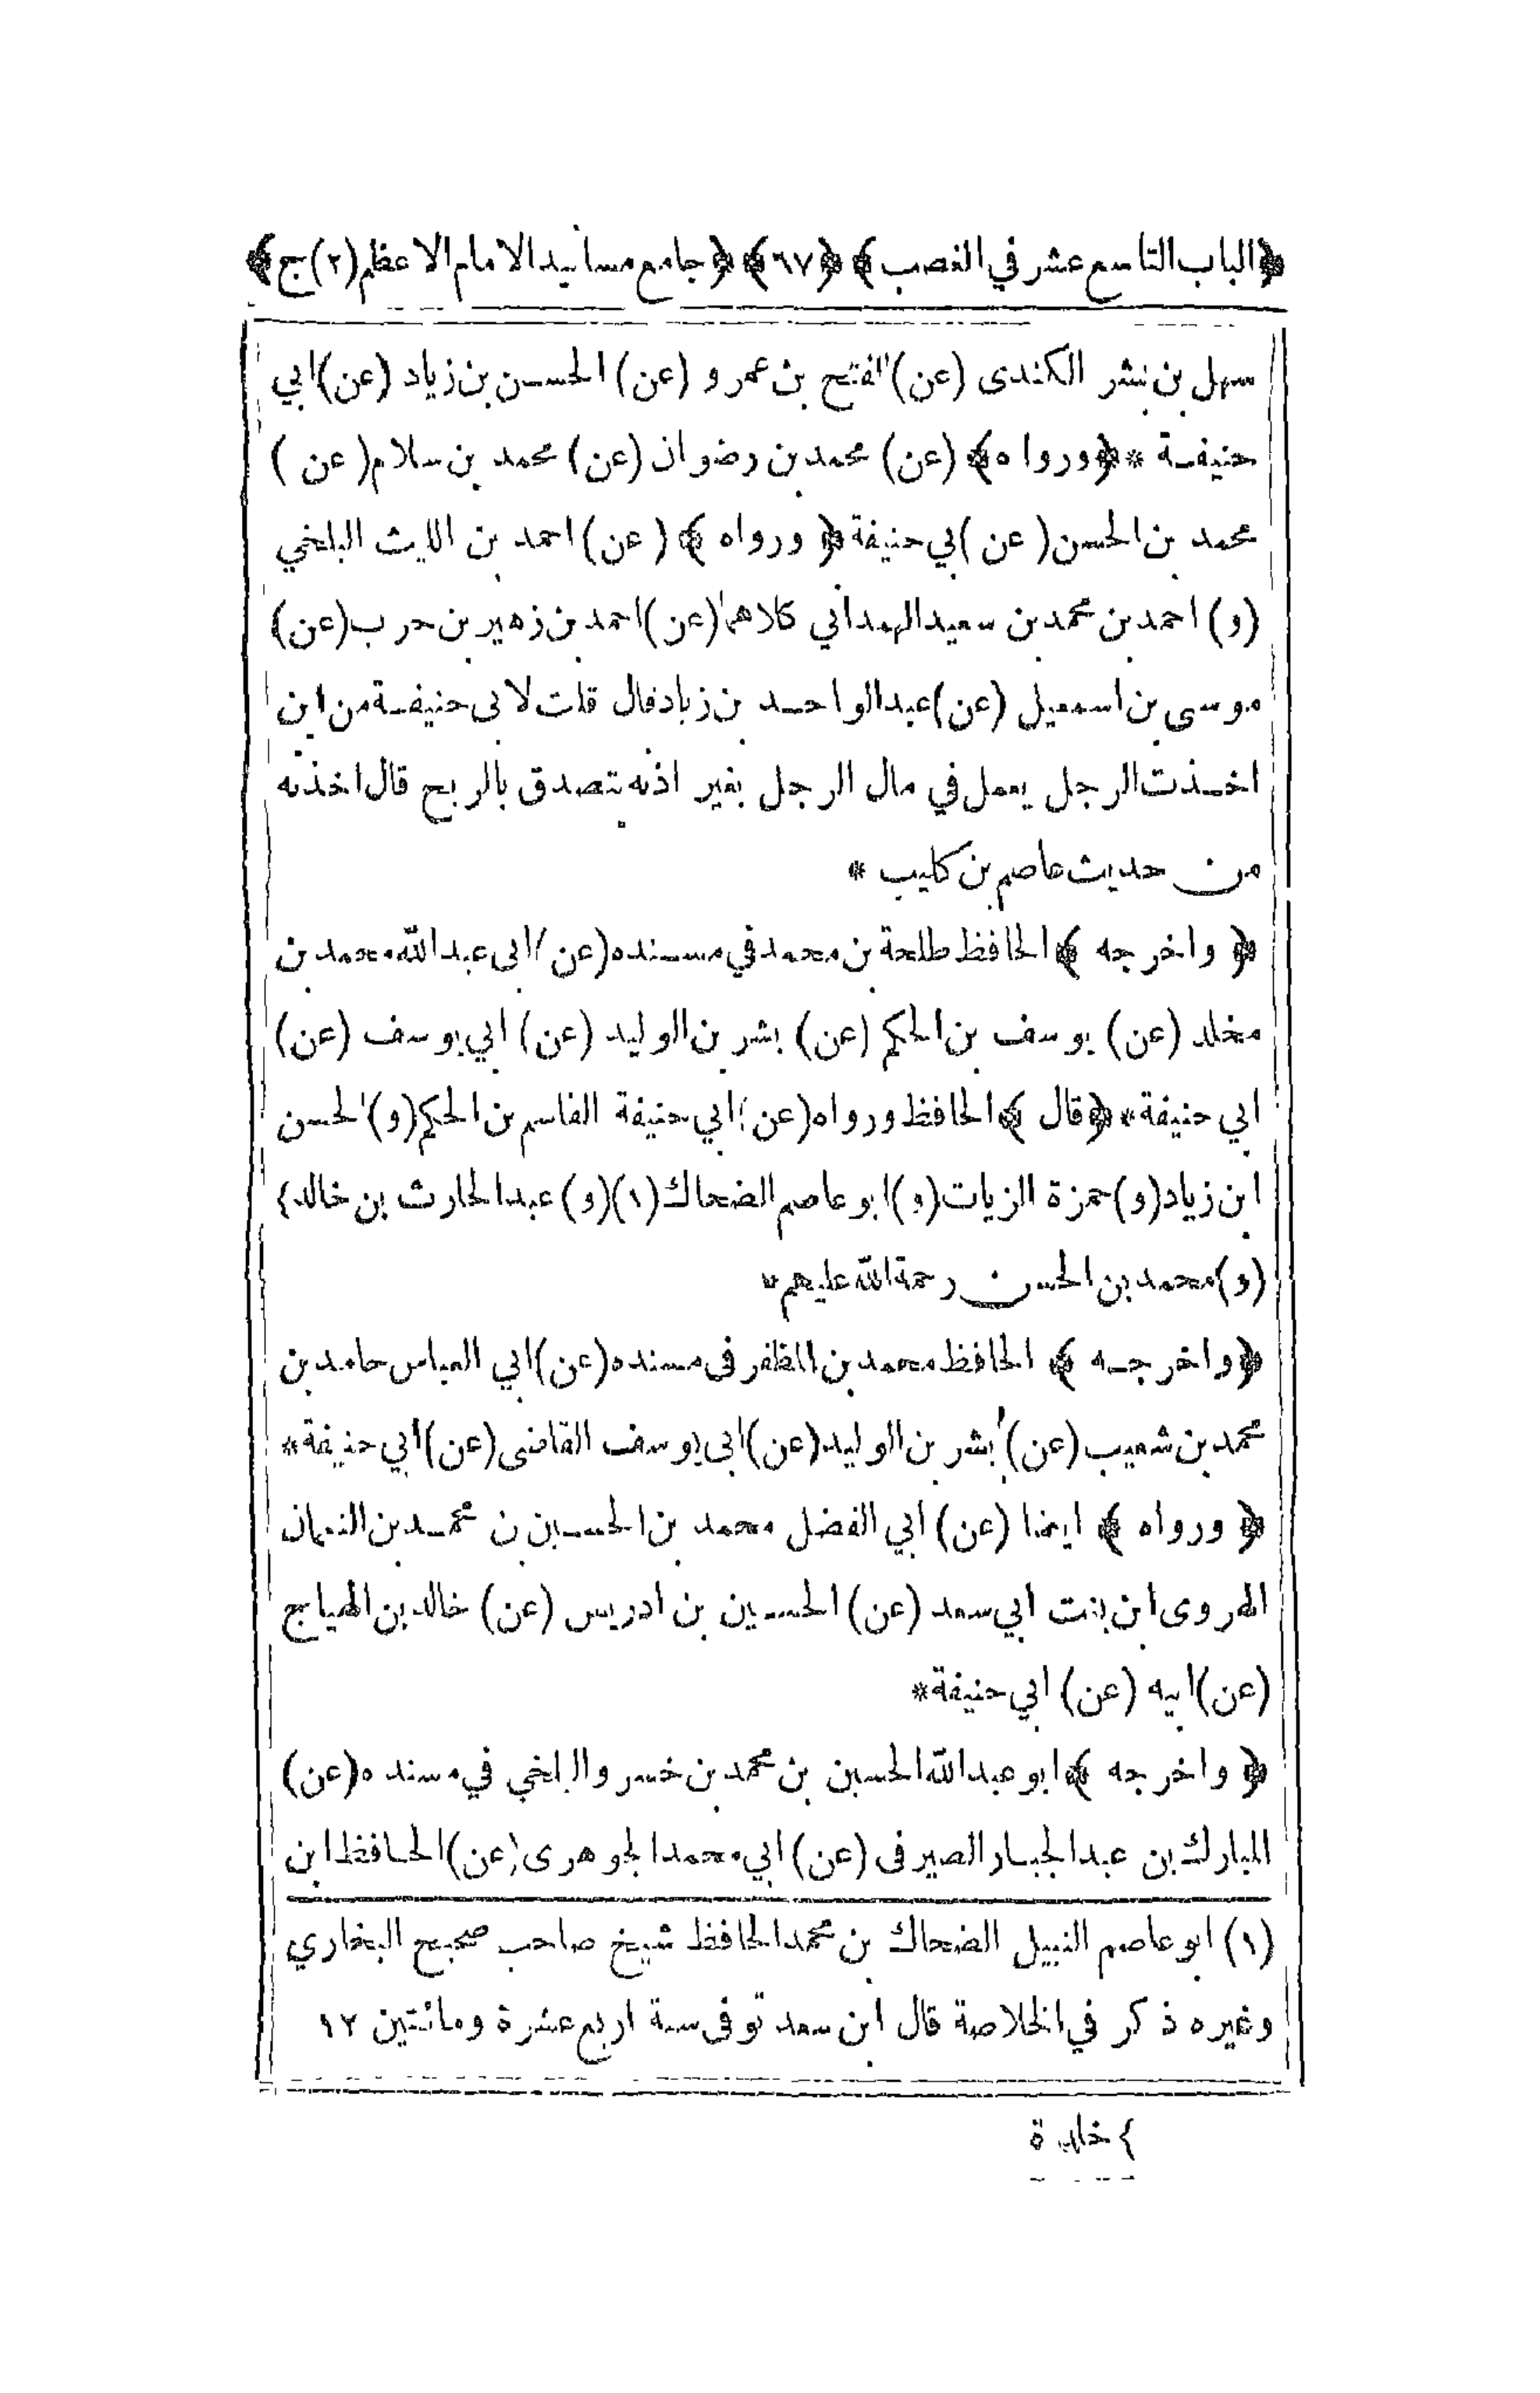 ﴿الباب التاسع عشر في الغصب﴾ ﴿٦٧﴾ ﴿جامع مسانيد الامام الاعظم (٢) ج﴾
سهل بن بشر الكندى (عن) الفتح بن عمرو (عن) الحسن بن زياد (عن) ابي
حنيفة * ﴿ورواه﴾ (عن) محمد بن رضوان (عن) محمد بن سلام (عن)
محمد بن الحسن (عن) بي حنيفة ﴿ورواه﴾ (عن) احمد بن الليث البلخي
(و) احمد بن محمد بن سعيد الهمداني كلاهما (عن) احمد بن زهير بن حرب (عن)
موسى بن اسمعيل (عن) عبد الواحد بن زياد فال قلت لابى حنيفة من اين
اخذت الرجل يعمل في مال الرجل بغير اذنه يتصدق بالربح قال اخذته
من حديث عاصم بن كليب *
﴿واخرجه﴾ الحافظ طلحة بن محمد في مسنده (عن) ابى عبد الله محمد بن
مخلد (عن) يوسف بن الحكم (عن) بشر بن الوليد (عن) ابي يوسف (عن)
ابي حنيفة * ﴿قال﴾ الحافظ ورواه (عن) ابي حنيفة القاسم بن الحكم (و) الحسن
ابن زياد (و) حمزة الزيات (و) ابو عاصم الضحاك (١) (و) عبد الحارث بن خالد}
(و) محمد بن الحسن رحمة الله عليهم *
﴿واخرجه﴾ الحافظ محمد بن المظفر فى مسنده (عن) ابي العباس حامد بن
محمد بن شعيب (عن) بشر بن الوليد (عن) ابى يوسف القاضى (عن) ابي حنيفة *
﴿ورواه﴾ ايضا (عن) ابي الفضل محمد بن الحسين بن محمد بن النعمان
الهروى ابن بنت ابي سعد (عن) الحسين بن ادريس (عن) خالد بن الهياج
(عن) ابيه (عن) ابي حنيفة *
﴿واخرجه﴾ ابو عبد الله الحسين بن محمد بن خسرو البلخي في مسنده (عن)
المبارك بن عبد الجبار الصيرفى (عن) ابي محمد الجوهرى (عن) الحافظ ابن
(١) ابو عاصم النبيل الضحاك بن محمد الحافظ شيخ صاحب صحيح البخاري
وغيره ذكر في الخلاصة قال ابن سعد توفى سنة اربع عشرة ومائتين ١٢
} خلدة